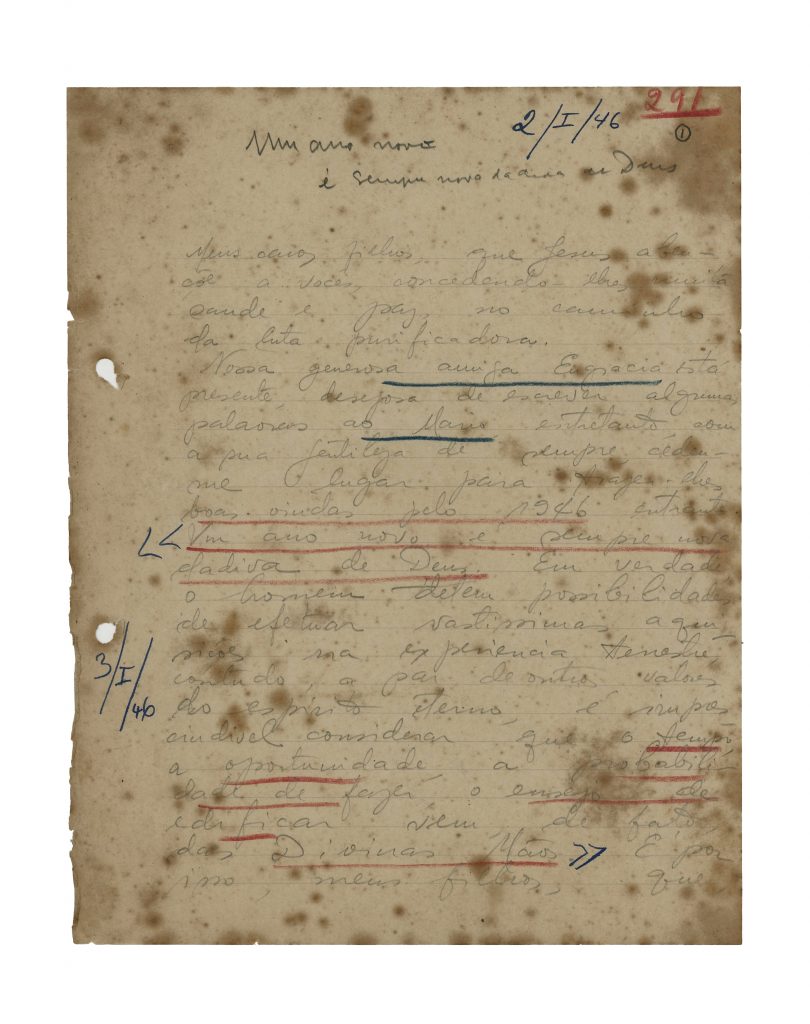 291
2/I/46
1
Um ano novo
é sempre nova dadiva de Deus
Meus caros filhos, que Jesus aben-
çôe a vocês, concedendo-lhes muita
saude e paz no caminho
da luta purificadora.
Nossa generosa amiga Engracia está
presente, desejosa de escrever algumas
palavras ao Mario entretanto com
a sua gentileza de sempre cédeu-
me o lugar para trazer-lhes
boas vindas pelo 1946 entrante.
<< Um ano novo é sempre nova
dadiva de Deus. Em verdade
o homem detem possibilidades
de efetuar vastissimas aqui-
sições na experiencia terrestre
contudo, a par de outros valores
do espirito eterno, é impres-
cindivel considerar que o tempo
3/I/46
a oportunidade, a probabili-
dade de fazer o ensejo de
edificar vêm, de fato,
das Divinas Mãos >> É por
isso, meus filhos, que,